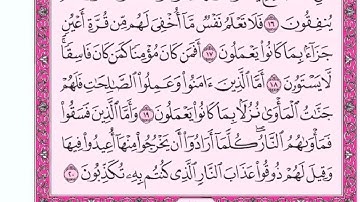 يُنفِقُونَ ١٦ فَلَا تَعْلَمُ نَفْسٌ مَّآ أُخْفِىَ لَهُم مِّن قُرَّةِ أَعْيُنٍ
جَزَآءَۢ بِمَا كَانُوا۟ يَعْمَلُونَ ١٧ أَفَمَن كَانَ مُؤْمِنًا كَمَن كَانَ فَاسِقًا ۚ
لَّا يَسْتَوُۥنَ ١٨ أَمَّا ٱلَّذِينَ ءَامَنُوا۟ وَعَمِلُوا۟ ٱلصَّـٰلِحَـٰتِ فَلَهُمْ
جَنَّـٰتُ ٱلْمَأْوَىٰ نُزُلًۢا بِمَا كَانُوا۟ يَعْمَلُونَ ١٩ وَأَمَّا ٱلَّذِينَ فَسَقُوا۟
فَمَأْوَىٰهُمُ ٱلنَّارُ ۖ كُلَّمَآ أَرَادُوٓا۟ أَن يَخْرُجُوا۟ مِنْهَآ أُعِيدُوا۟ فِيهَا
وَقِيلَ لَهُمْ ذُوقُوا۟ عَذَابَ ٱلنَّارِ ٱلَّذِى كُنتُم بِهِۦ تُكَذِّبُونَ ٢٠